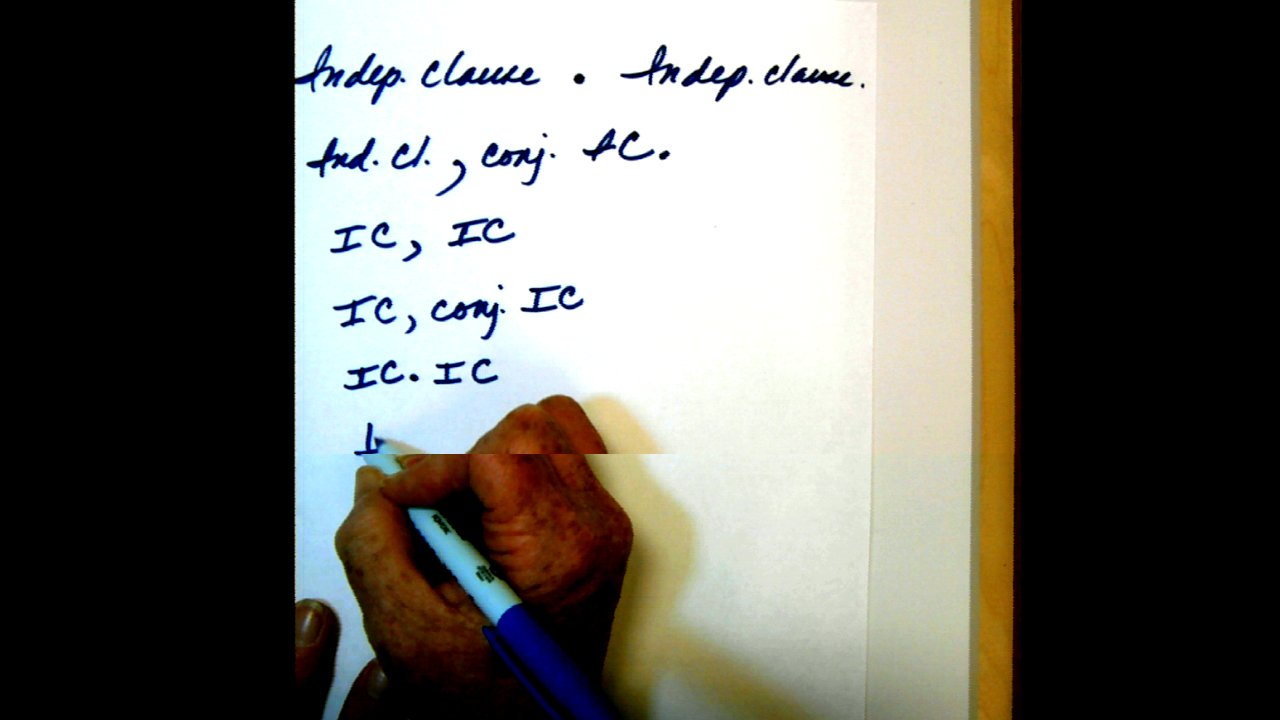 Indep. clause . Indep. clause.
Ind. cl., conj. IC.
IC, IC
IC, conj. IC
IC. IC
I